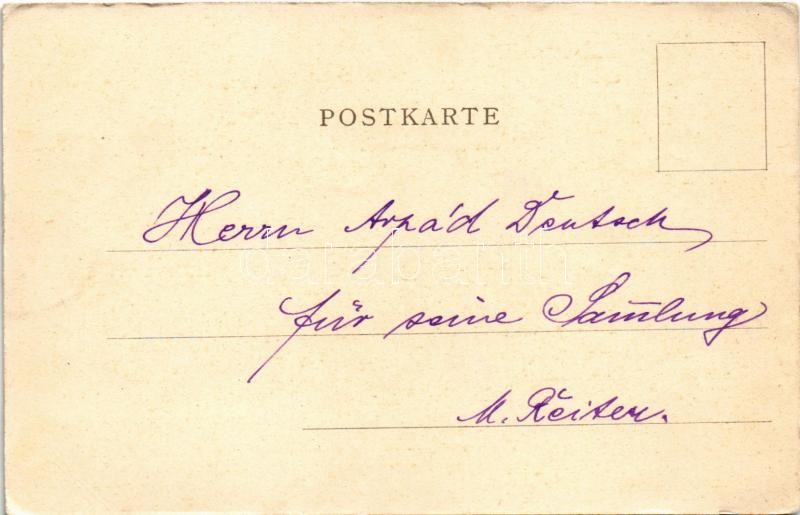 POSTKARTE
Herrn Arpád Deutsch
für seine Sam̅lung
M. Reiter.
darabanth